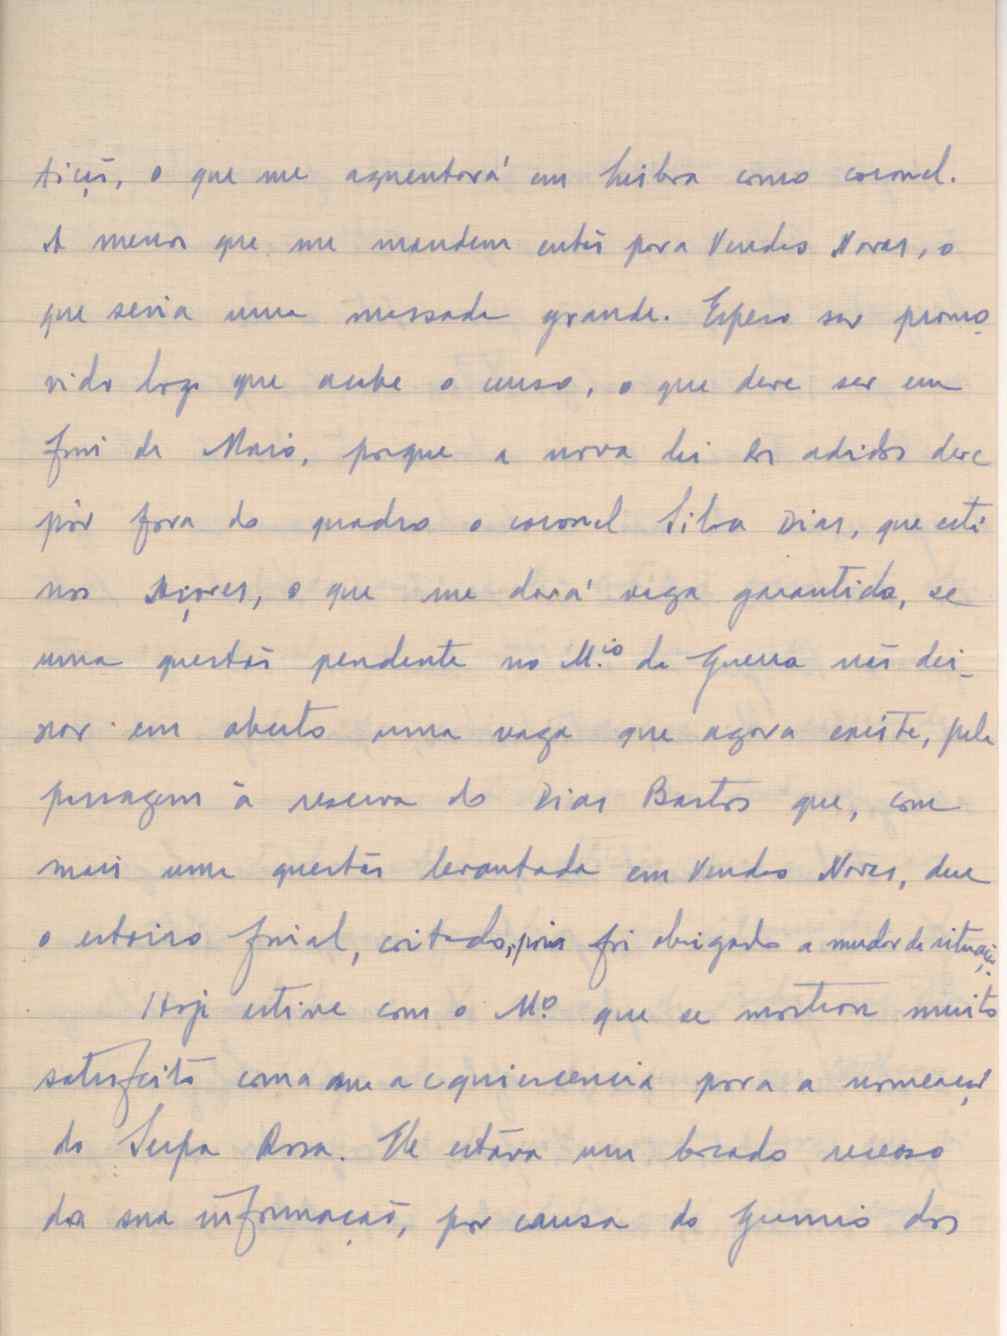 tiçã, o que me aguentará em Lisboa como coronel.
A menos que me mandem então para Vendas Novas, o
que seria uma massada grande. Espero ser promo-
vido logo que acabe o curso, o que deve ser em
fins de Maio, porque a nova lei dos adidos deve
pôr fora do quadro o coronel Silva Dias, que está
nos Açores, o que me dará vaga garantida, se
uma questão pendente no M.io da Guerra não dei-
xar em aberto uma vaga que agora existe, pela
passagem à reserva do Dias Bastos que, com
mais uma questão levantada em Vendas Novas, deu
o estoiro final, coitado, pois foi obrigado a mudar de situação.
Hoje estive com o M.o que se mostrou muito
satisfeito com a sua acquiescencia para a nomeação
do Serpa Rosa. Ele estava um bocado receoso
da sua informação, por causa do Gremio dos